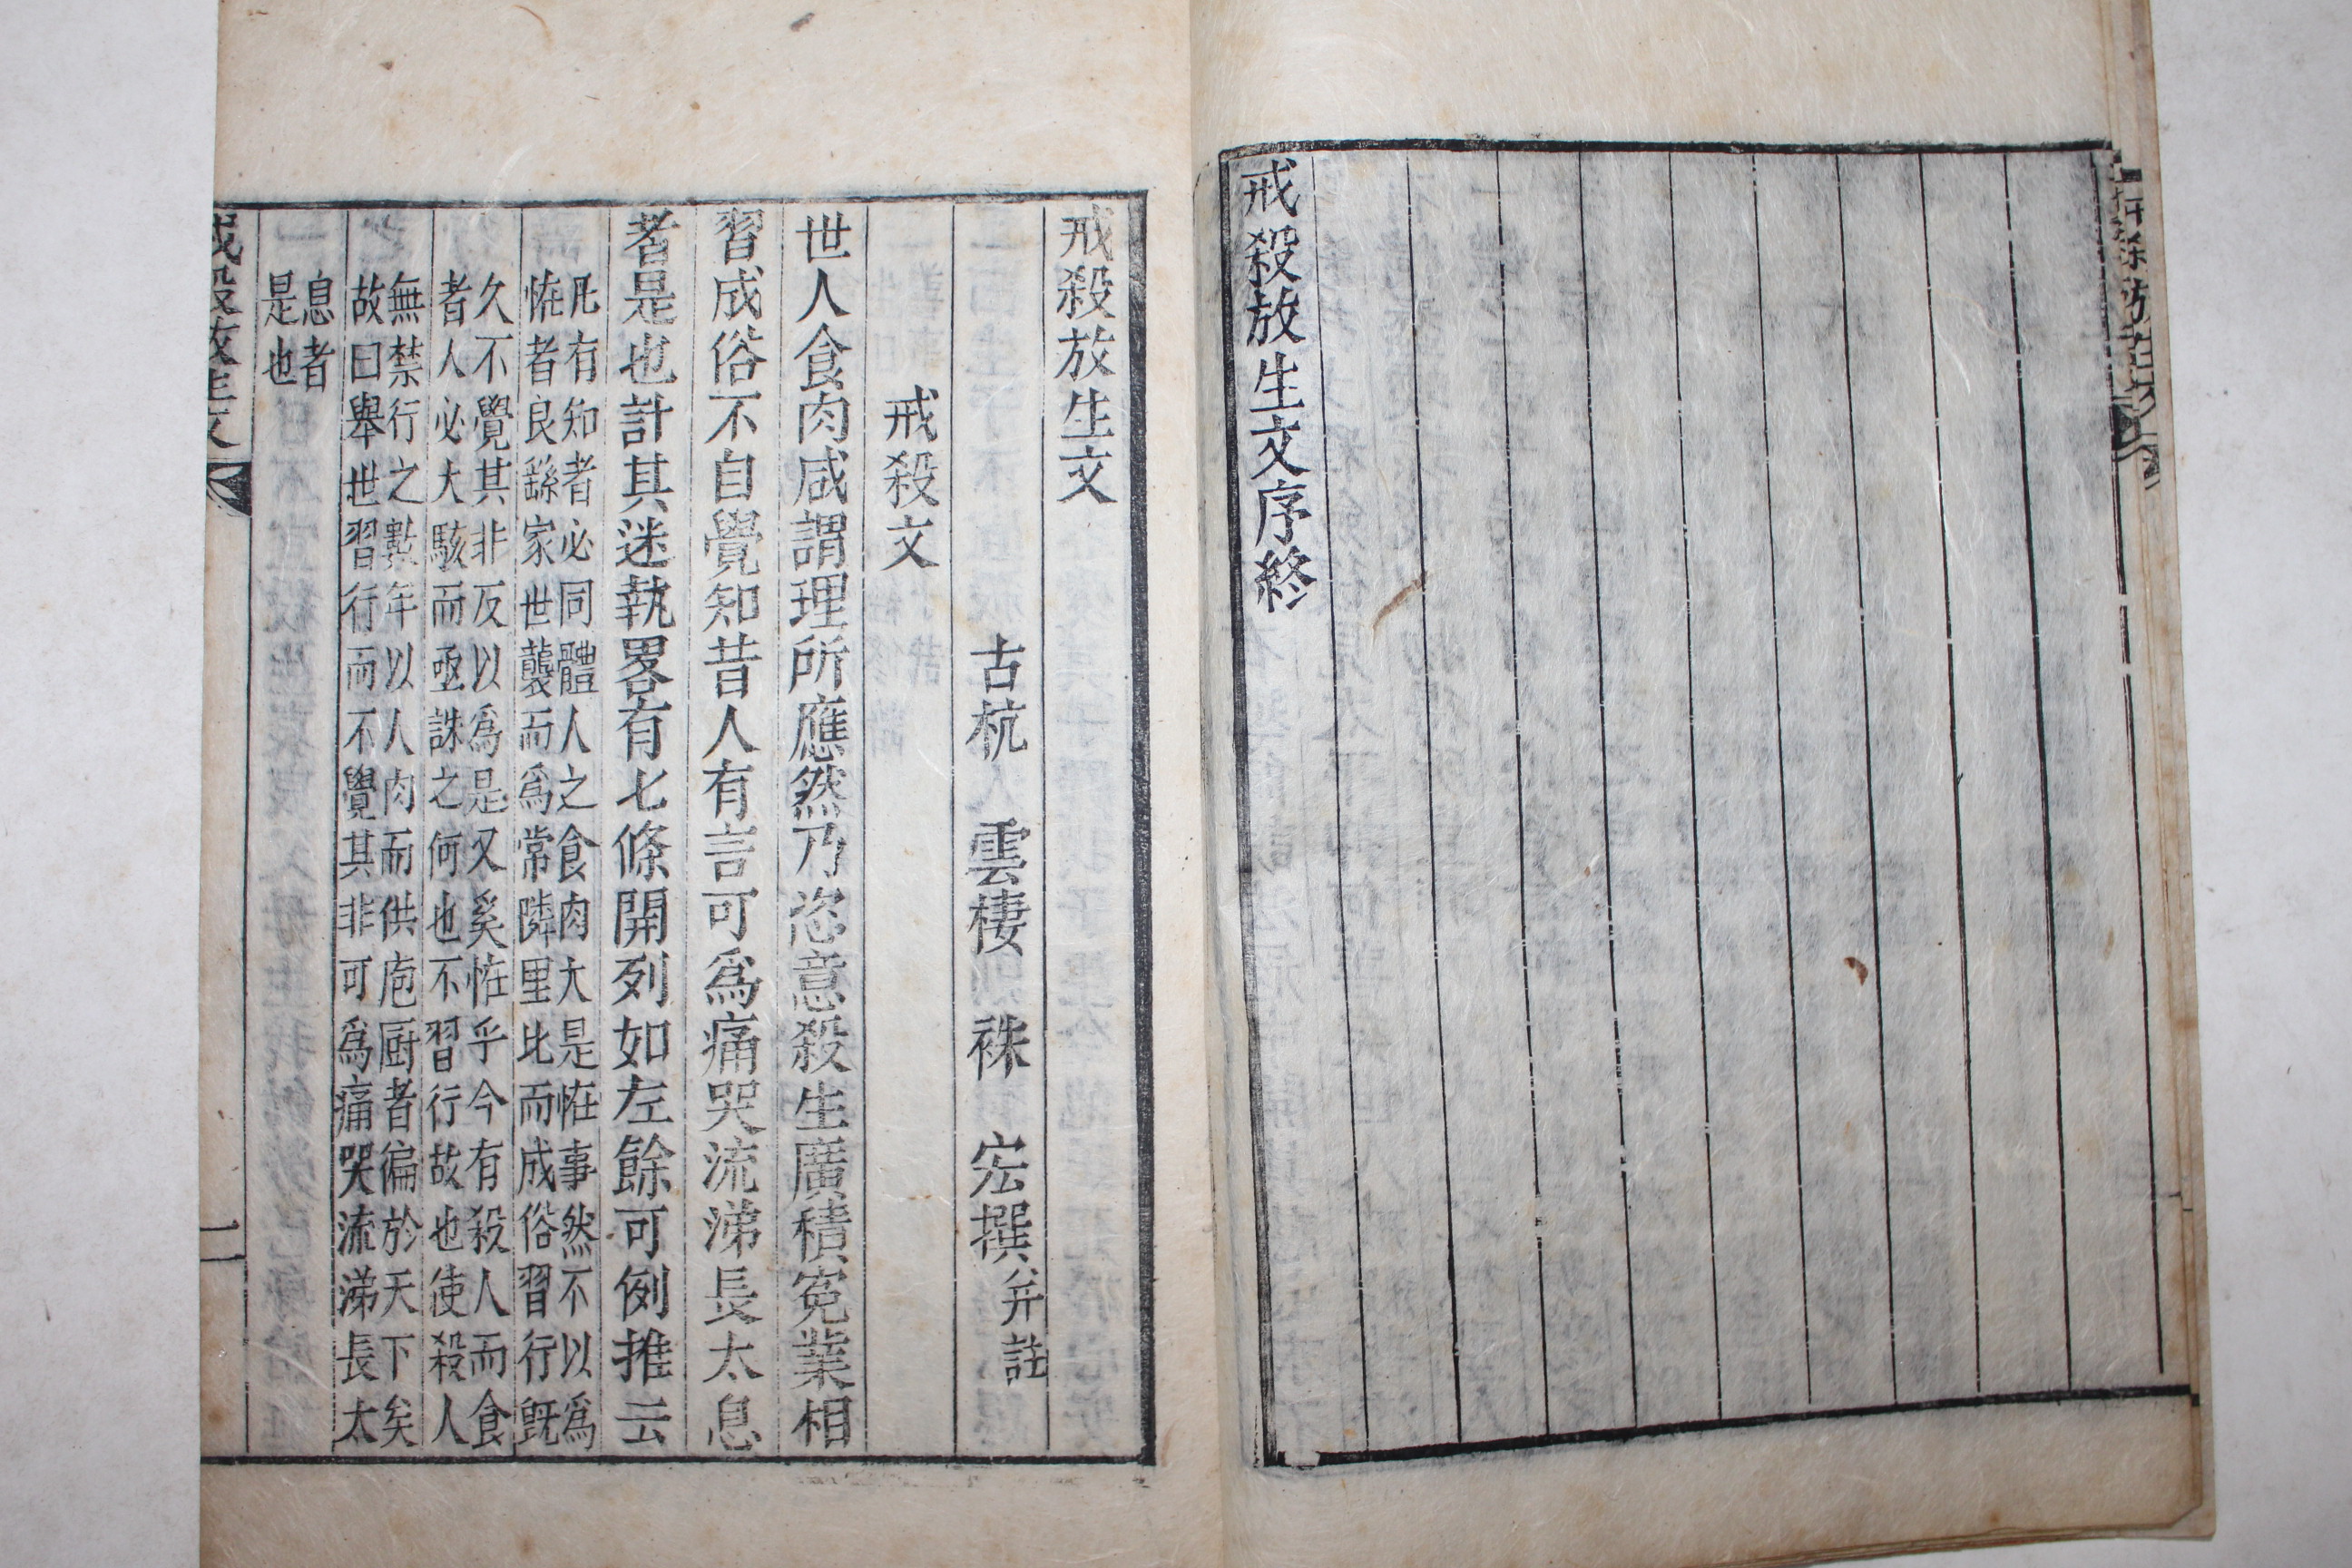 戒殺放生文序終
戒殺放生文
古杭 雲棲 袾 宏撰并註
戒殺文
世人食肉咸謂理所應然乃恣意殺生廣積寃業相
習成俗不自覺知昔人有言可爲痛哭流涕長太息
者是也計其迷執畧有七條開列如左餘可例推云
凡有知者必同體人之食肉大是恠事然不以爲
恠者良繇家世襲而爲常隣里比而成俗習行旣
久不覺其非反以爲是又奚恠乎今有殺人而食
者人必大駭而亟誅之何也不習行故也使殺人
無禁行之數年以人肉而供庖厨者徧於天下矣
故曰舉世習行而不覺其非可爲痛哭流涕長太
息者
是也
戒殺放生文
二